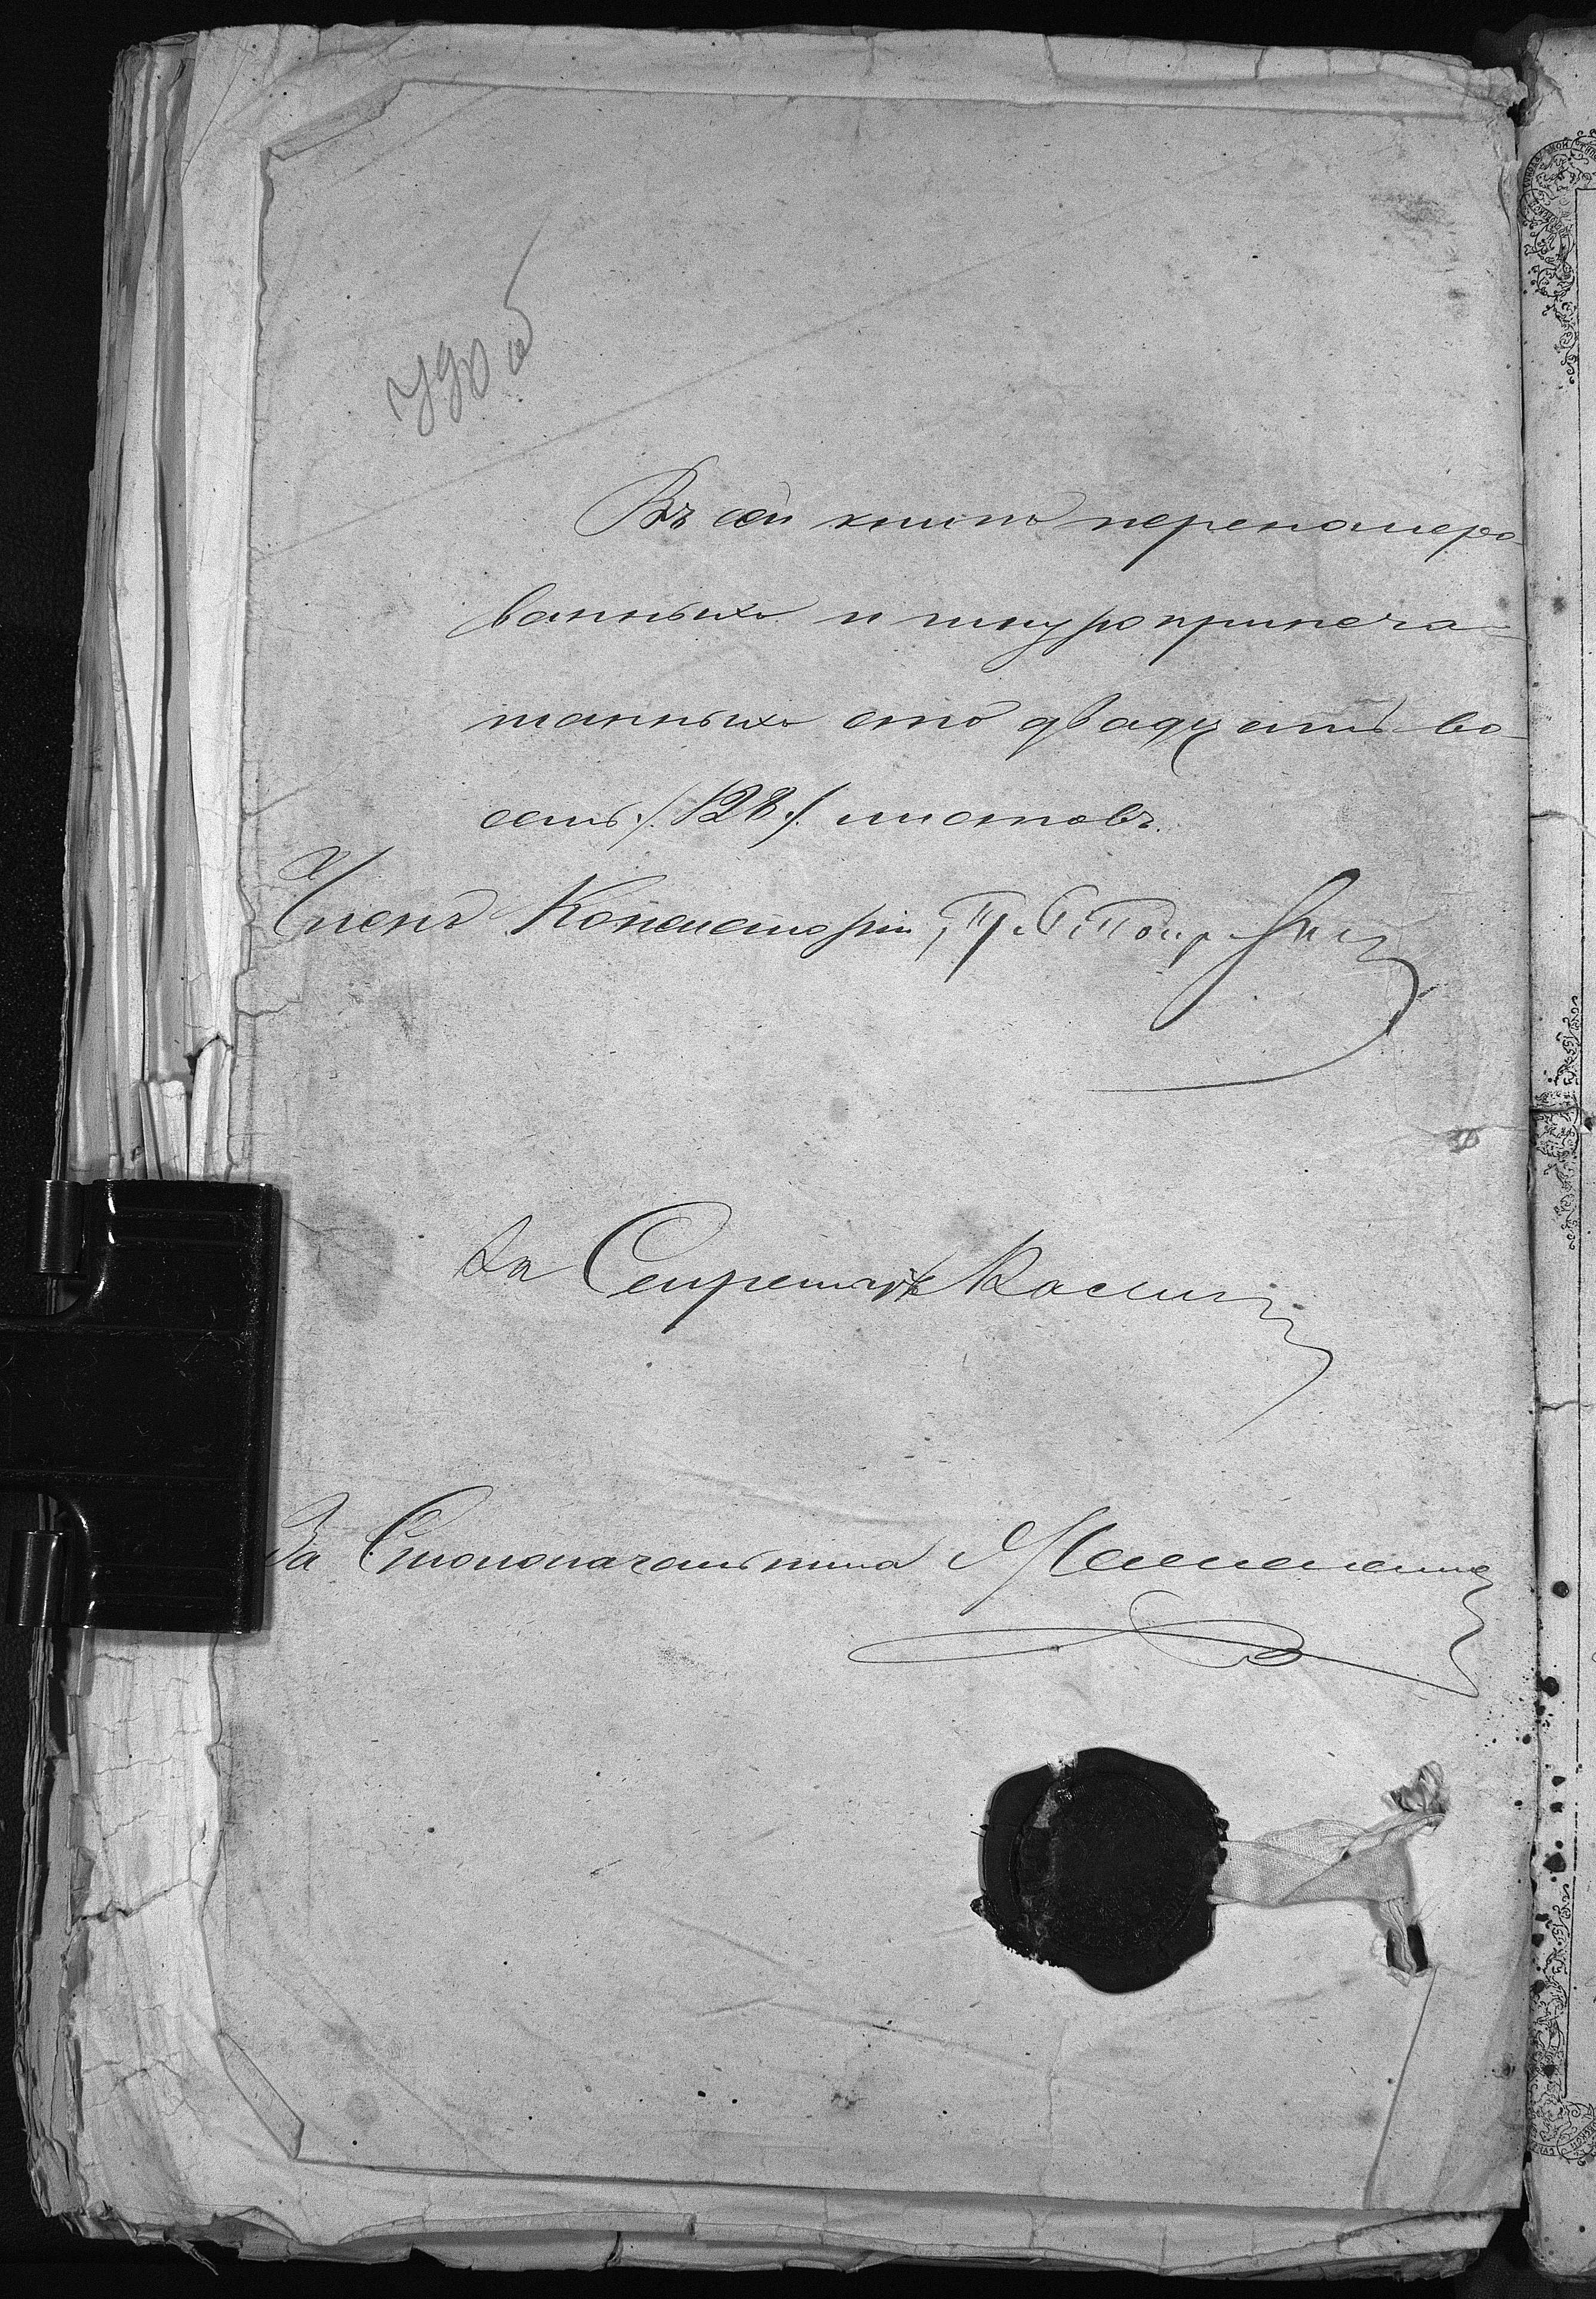 Въ сей книгѣ перенамеро-
ванныхъ и шнуроприпеча-
танныхъ сто двадцать во-
семь /128/ листовъ.
Членъ Консисторіи,
За Секретаря
За Столоначальника